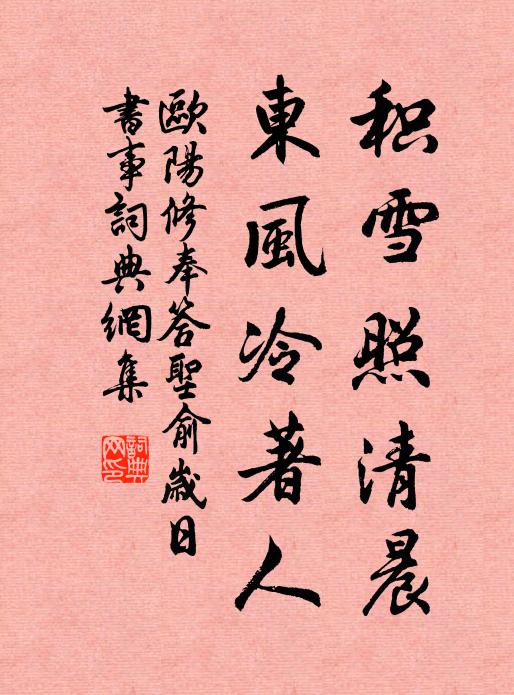 积雪照清晨
東風冷著人
歐陽修奉答聖俞歲日
書事詞典網集
詞典网印